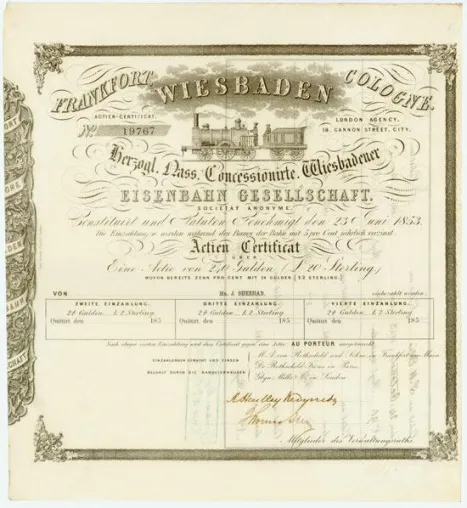 FRANKFORT. WIESBADEN COLOGNE.
ACTIEN-CERTIFICAT.
No. 19767
LONDON AGENCY,
18, CANNON STREET, CITY.
Herzogl. Nass. Concessionirte. Wiesbadener
EISENBAHN GESELLSCHAFT.
SOCIETÄT ANONYME.
Constituirt und Statuten Genehmigt den 23 Juni 1853.
Die Einzahlungen werden während des Baues der Bahn mit 5 per Cent jährlich verzinst.
Actien Certificat
ÜBER
Eine Actie von 240 Gulden (L 20 Sterling)
WOVON BEREITS ZEHN PER CENT MIT 24 GULDEN (£2 STERLING.)
VON MR. J. SHEEHAN.
ZWEITE EINZAHLUNG. DRITTE EINZAHLUNG. VIERTE EINZAHLUNG.
24 Gulden, L 2. Sterling 24 Gulden, L 2. Sterling 24 Gulden, L 2. Sterling
Quitirt den 185 Quitirt den 185 Quitirt den 185
Nach obiger vierten Einzahlung wird dies Certificat gegen eine Actie AU PORTEUR
EINZAHLUNGEN GEMACHT UND ZINSEN
BEZAHLT DURCH DIE HANDELSHÄUSER
M. A. von Rothschild und Söhne in Frankfurt am Main
De Rothschild Frères in Paris
Glyn Mills & Co. in London
Mitglieder des Verwaltungsraths.